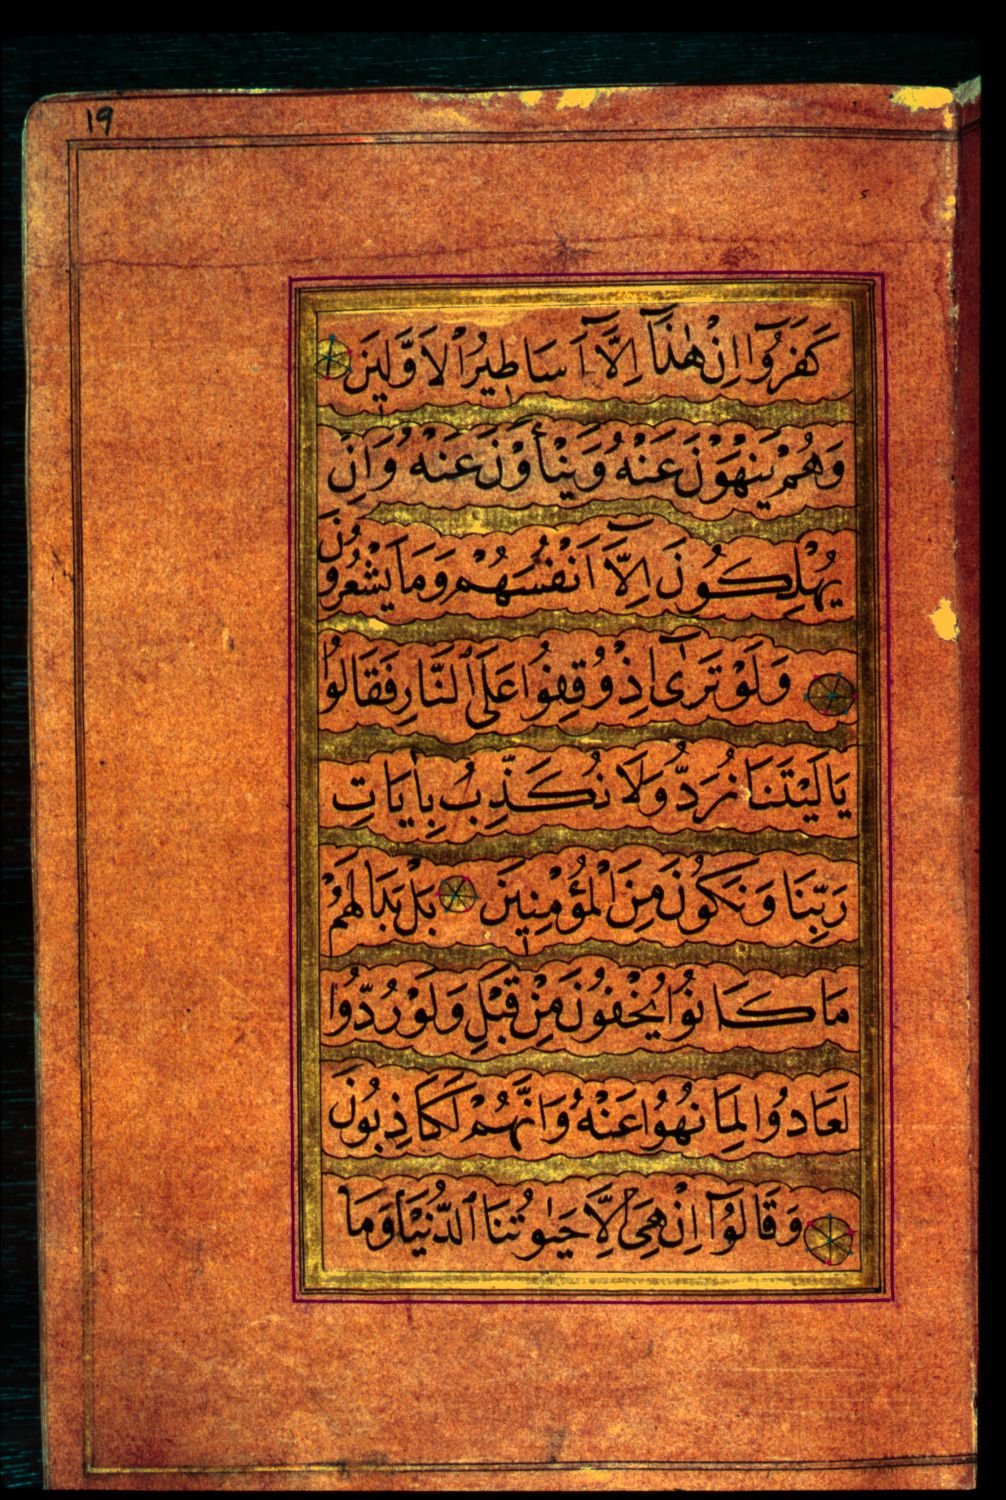 19
كَفَرُوٓا اِنْ هٰذَآ اِلَّآ اَسَاطِيرُ ٱلْاَوَّلِينَ
وَهُمْ يَنْهَوْنَ عَنْهُ وَيَنْأَوْنَ عَنْهُ وَاِنْ
يُهْلِكُونَ اِلَّآ اَنْفُسَهُمْ وَمَا يَشْعُرُونَ
وَلَوْ تَرٰىٓ اِذْ وُقِفُوا عَلَى ٱلنَّارِ فَقَالُوا
يَا لَيْتَنَا نُرَدُّ وَلَا نُكَذِّبُ بِأٰيَاتِ
رَبِّنَا وَنَكُونَ مِنَ ٱلْمُؤْمِنِينَ بَلْ بَدَا لَهُمْ
مَا كَانُوا يُخْفُونَ مِنْ قَبْلِ وَلَوْ رُدُّوا
لَعَادُوا لِمَا نُهُوا عَنْهُ وَاِنَّهُمْ لَكَاذِبُونَ
وَقَالُوٓا اِنْ هِىَ اِلَّا حَيٰوتُنَا ٱلدُّنْيَا وَمَا